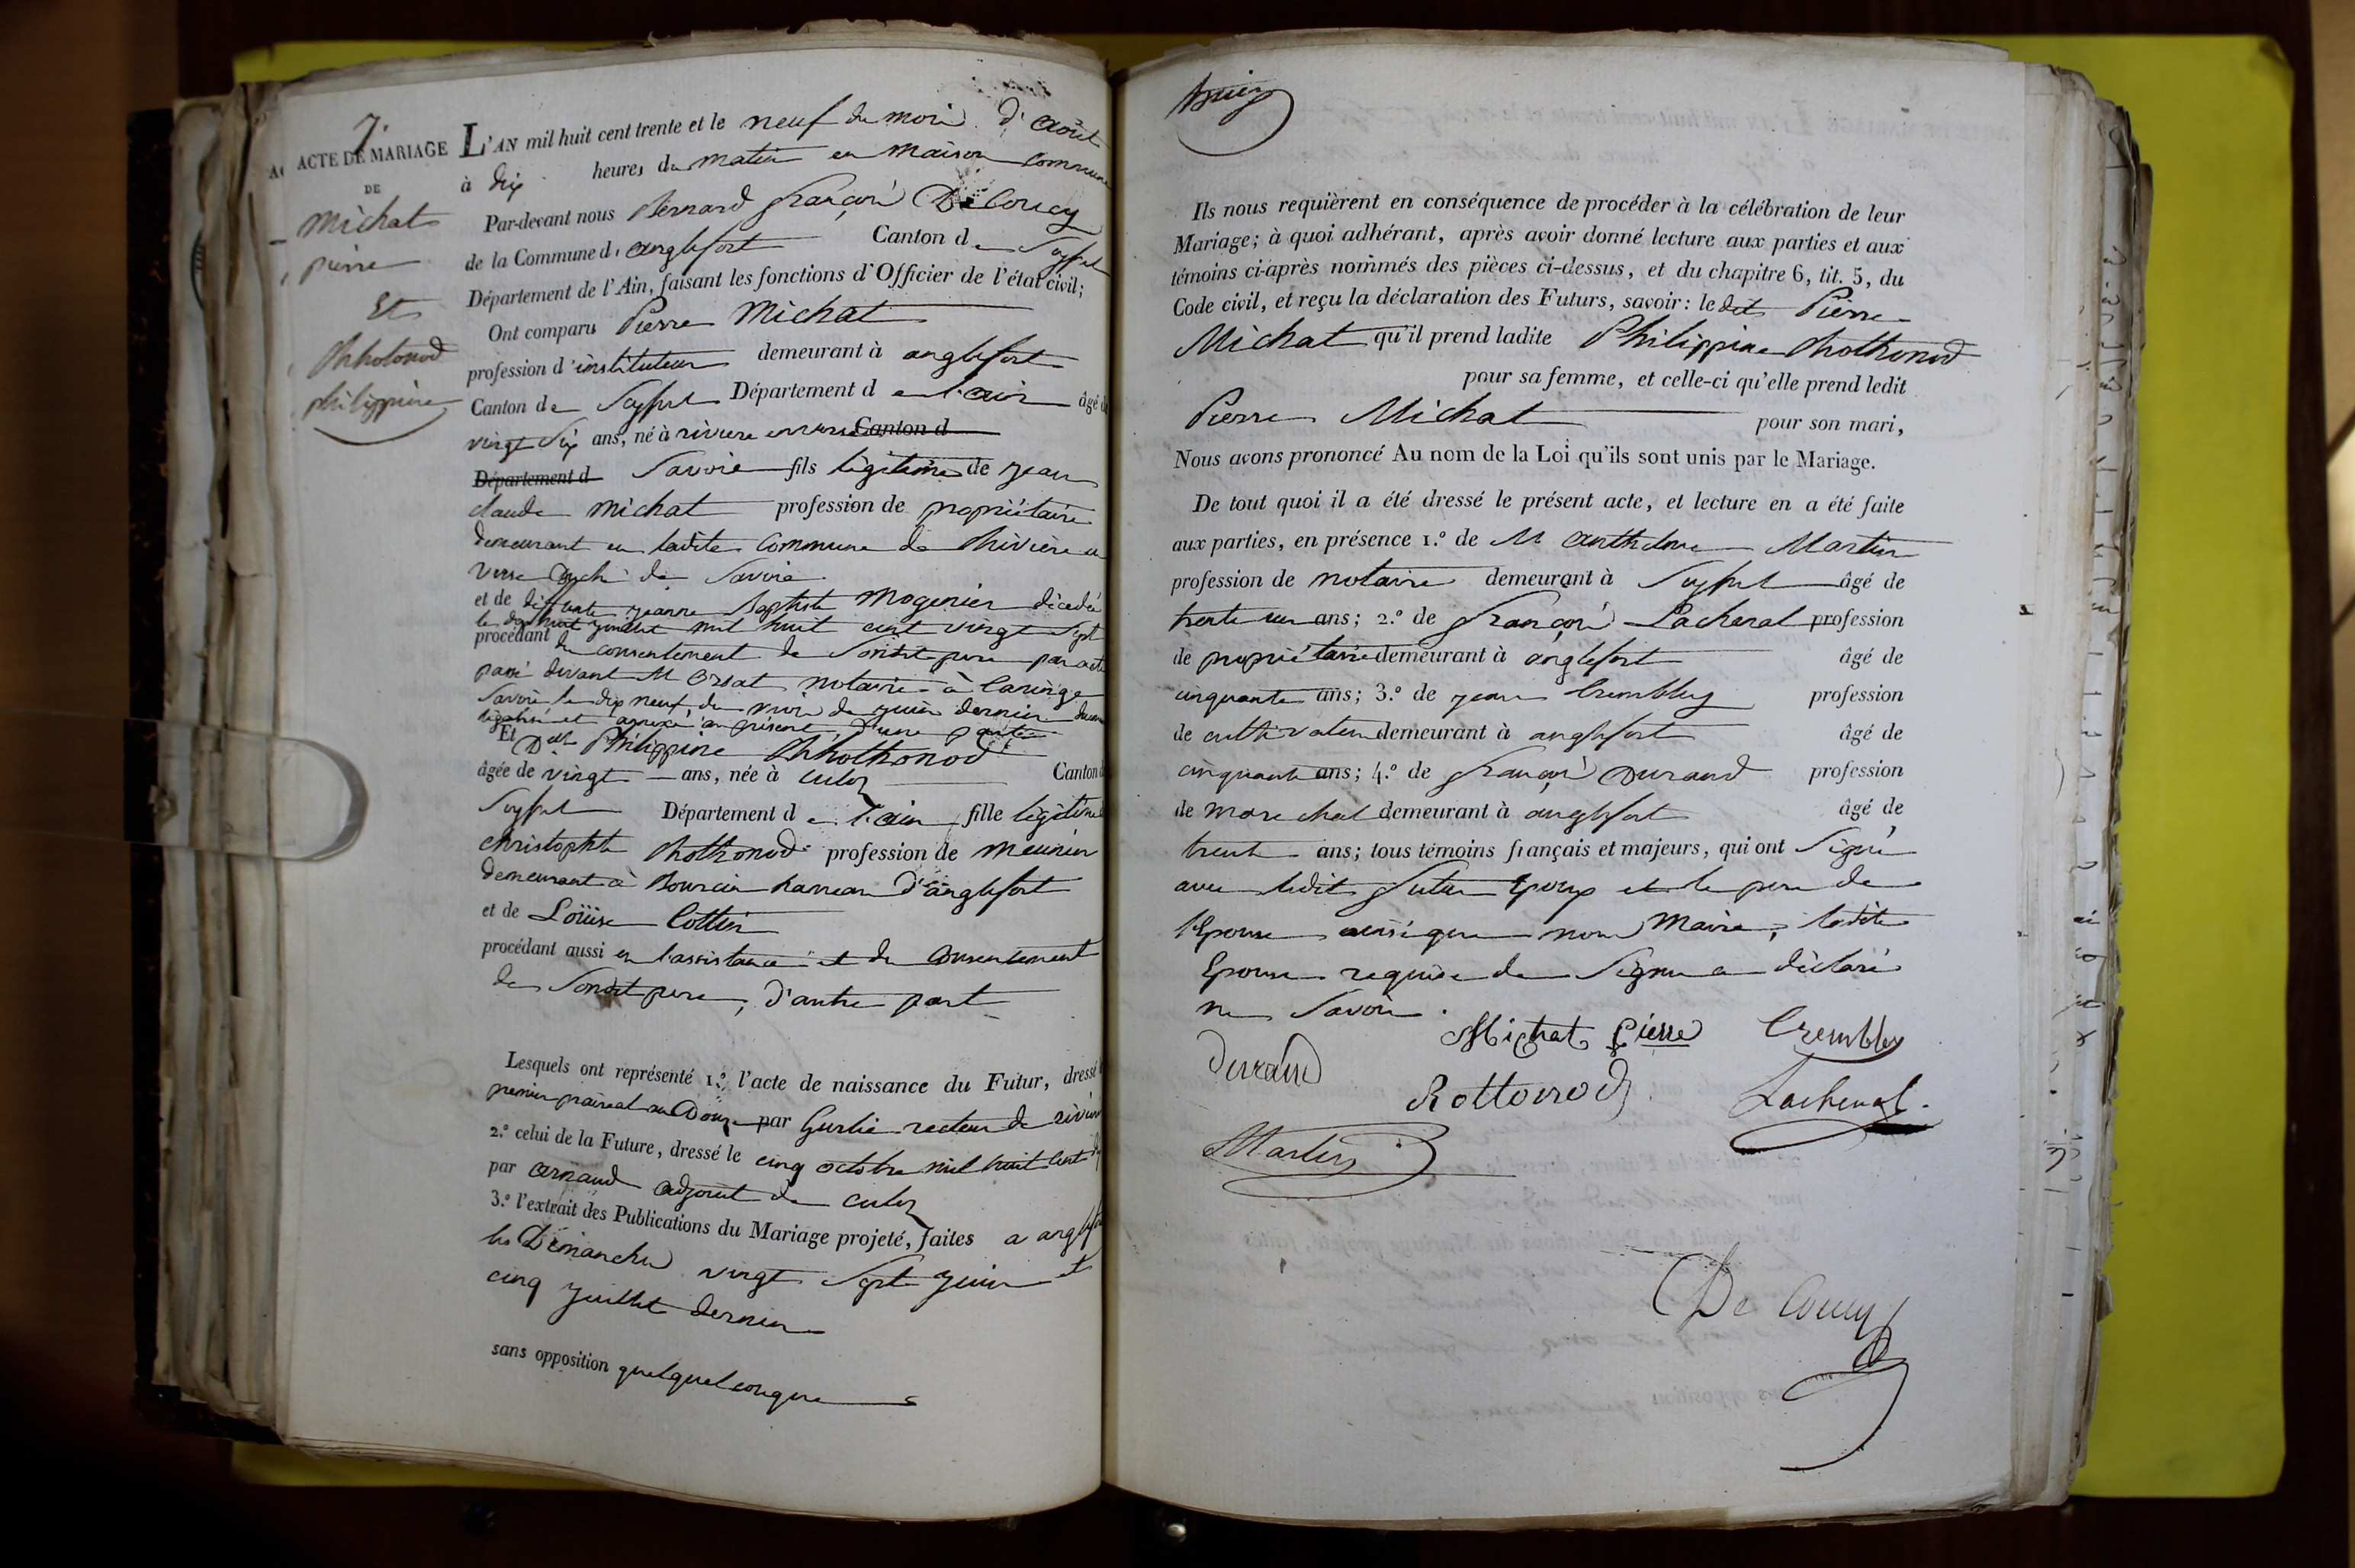 7.
ACTE DE MARIAGE
DE
Michat
pierre
Et
Rhhotonod
philippine
L'AN mil huit cent trente et le neuf du mois d'août
à dix heures du matin en maison commune
Par-devant nous Bernard françois De Coucy
de la Commune d'anglefort Canton de Seyssel
Département de l'Ain, faisant les fonctions d'Officier de l'état civil;
Ont comparu Pierre Michat
profession d'instituteur demeurant à anglefort
Canton de Seyssel Département de l'ain âgé de
vingt six ans, né à riviere enverse Canton d
Département d Savoie fils légitime de jean
claude Michat profession de propriétaire
demeurant en ladite Commune de Rivière en
verse Duché de Savoie
et de deffunte jeanne Baptiste Mogenier décédée
le dix huit juillet mil huit cent vingt sept
procédant du consentement de Sondit pere par acte
passé devant M Orsat notaire à
Savoie le dix neuf du mois de juin dernier
légalisé et annexé au présent, d'une partie
Et Dlle Philippine Rhhothonod
âgée de vingt ans, née à culoz Canton de
Seyssel Département de l'ain fille légitime
christophe Rhothonod profession de Meunier
demeurant à hameau d'anglefort
et de Loüise Cottin
procédant aussi en l'assistance et du Consentement
de Sondit pere, d'autre part
Lesquels ont représenté 1.° l'acte de naissance du Futur, dressé
premier prairéal an Douze par recteur de rivière
2.° celui de la Future, dressé le cinq octobre mil huit cent dix
par arnaud adjoint de culoz
3.° l'extrait des Publications du Mariage projeté, faites a anglefort
les Dimanches vingt Sept juin et
cinq juillet dernier
sans opposition quelquelconque
huit
Ils nous requièrent en conséquence de procéder à la célébration de leur
Mariage; à quoi adhérant, après avoir donné lecture aux parties et aux
témoins ci-après nommés des pièces ci-dessus, et du chapitre 6, tit. 5, du
Code civil, et reçu la déclaration des Futurs, savoir: ledit Pierre
Michat qu'il prend ladite Philippine Rhothonod
pour sa femme, et celle-ci qu'elle prend ledit
Pierre Michat pour son mari,
Nous avons prononcé Au nom de la Loi qu'ils sont unis par le Mariage.
De tout quoi il a été dressé le présent acte, et lecture en a été faite
aux parties, en présence 1.° de M anthelme Martin
profession de notaire demeurant à Seyssel âgé de
trente un ans; 2.° de françois Lachenal profession
de propriétaire demeurant à anglefort âgé de
cinquante ans; 3.° de jean Cremblley profession
de cultivateur demeurant à anglefort âgé de
cinquante ans; 4.° de françois Durand profession
de marechal demeurant à anglefort âgé de
trente ans; tous témoins français et majeurs, qui ont Signé
avec ledit futur Epoux et le pere de
l'Epouse ainsi que nous Maire, ladite
Epouse requise de Signer a déclaré
ne Savoir.
Michat Pierre Crembley
Durand
Rottonod Lachenal
Martin
De Coucy